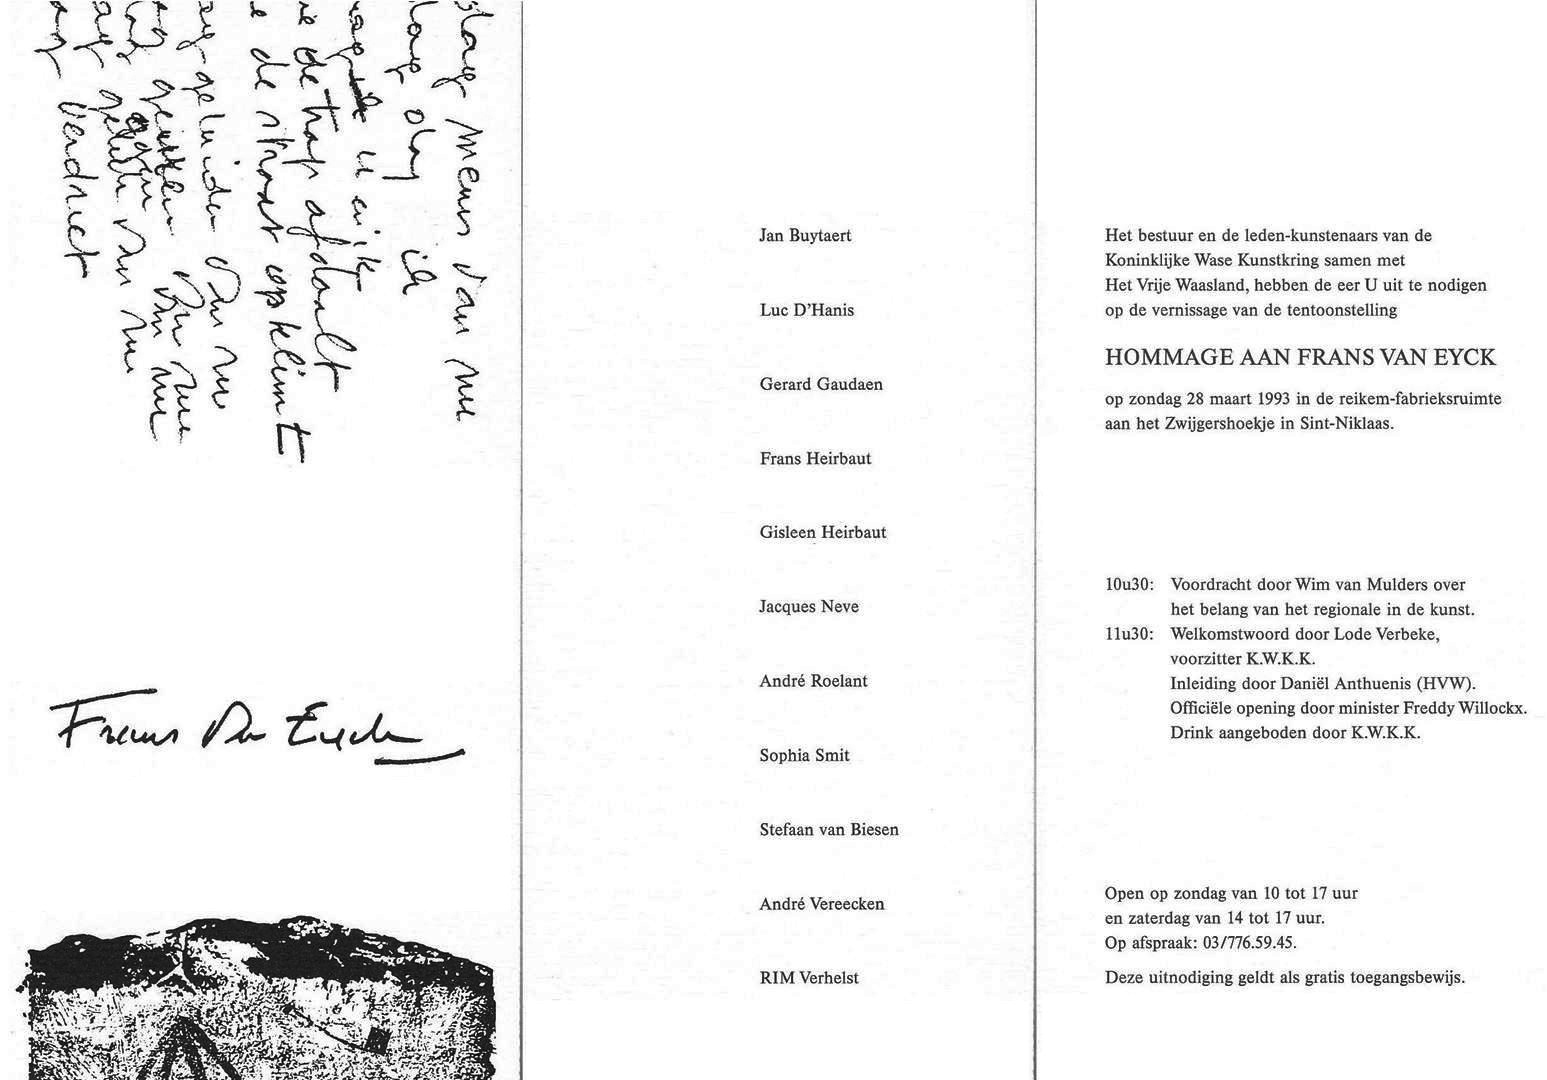 van nu
ik u
de trap afdaalt
de straat opklimt
geluiden van nu
van nu
van nu
verdriet
Frans Van Eyck
Jan Buytaert
Luc D'Hanis
Gerard Gaudaen
Frans Heirbaut
Gisleen Heirbaut
Jacques Neve
André Roelant
Sophia Smit
Stefaan van Biesen
André Vereecken
RIM Verhelst
Het bestuur en de leden-kunstenaars van de
Koninklijke Wase Kunstkring samen met
Het Vrije Waasland, hebben de eer U uit te nodigen
op de vernissage van de tentoonstelling
HOMMAGE AAN FRANS VAN EYCK
op zondag 28 maart 1993 in de reikem-fabrieksruimte
aan het Zwijgershoekje in Sint-Niklaas.
10u30: Voordracht door Wim van Mulders over
het belang van het regionale in de kunst.
11u30: Welkomstwoord door Lode Verbeke,
voorzitter K.W.K.K.
Inleiding door Daniël Anthuenis (HVW).
Officiële opening door minister Freddy Willockx.
Drink aangeboden door K.W.K.K.
Open op zondag van 10 tot 17 uur
en zaterdag van 14 tot 17 uur.
Op afspraak: 03/776.59.45.
Deze uitnodiging geldt als gratis toegangsbewijs.